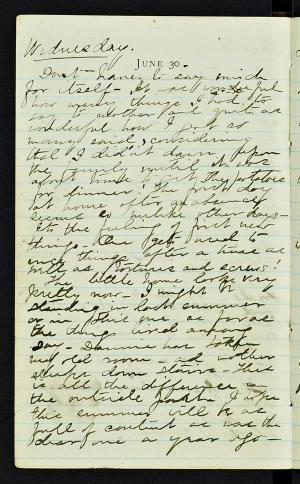 Wednesday.
JUNE 30
Don't have to say much
for itself - It was wonderful
how many things I had to
say to mother and quite as
wonderful how I got so
many said, considering
that I didn't dawn upon
the family until it was
about time to put the potatoes
for dinner! The first day
at home after an absence
seems so unlike other days -
It's the feeling of first new
things. One gets used to
such things after a time as
well as tortures and screws!
The little home looks very
pretty now - I might be
standing in last summer
or in this one as far as
the things lived among
say - Dammie has
my old room - and mother
sleeps down stairs - this
is all the difference in
the outside. I hope
this summer will be as
full of content as was the
dear one a year ago -